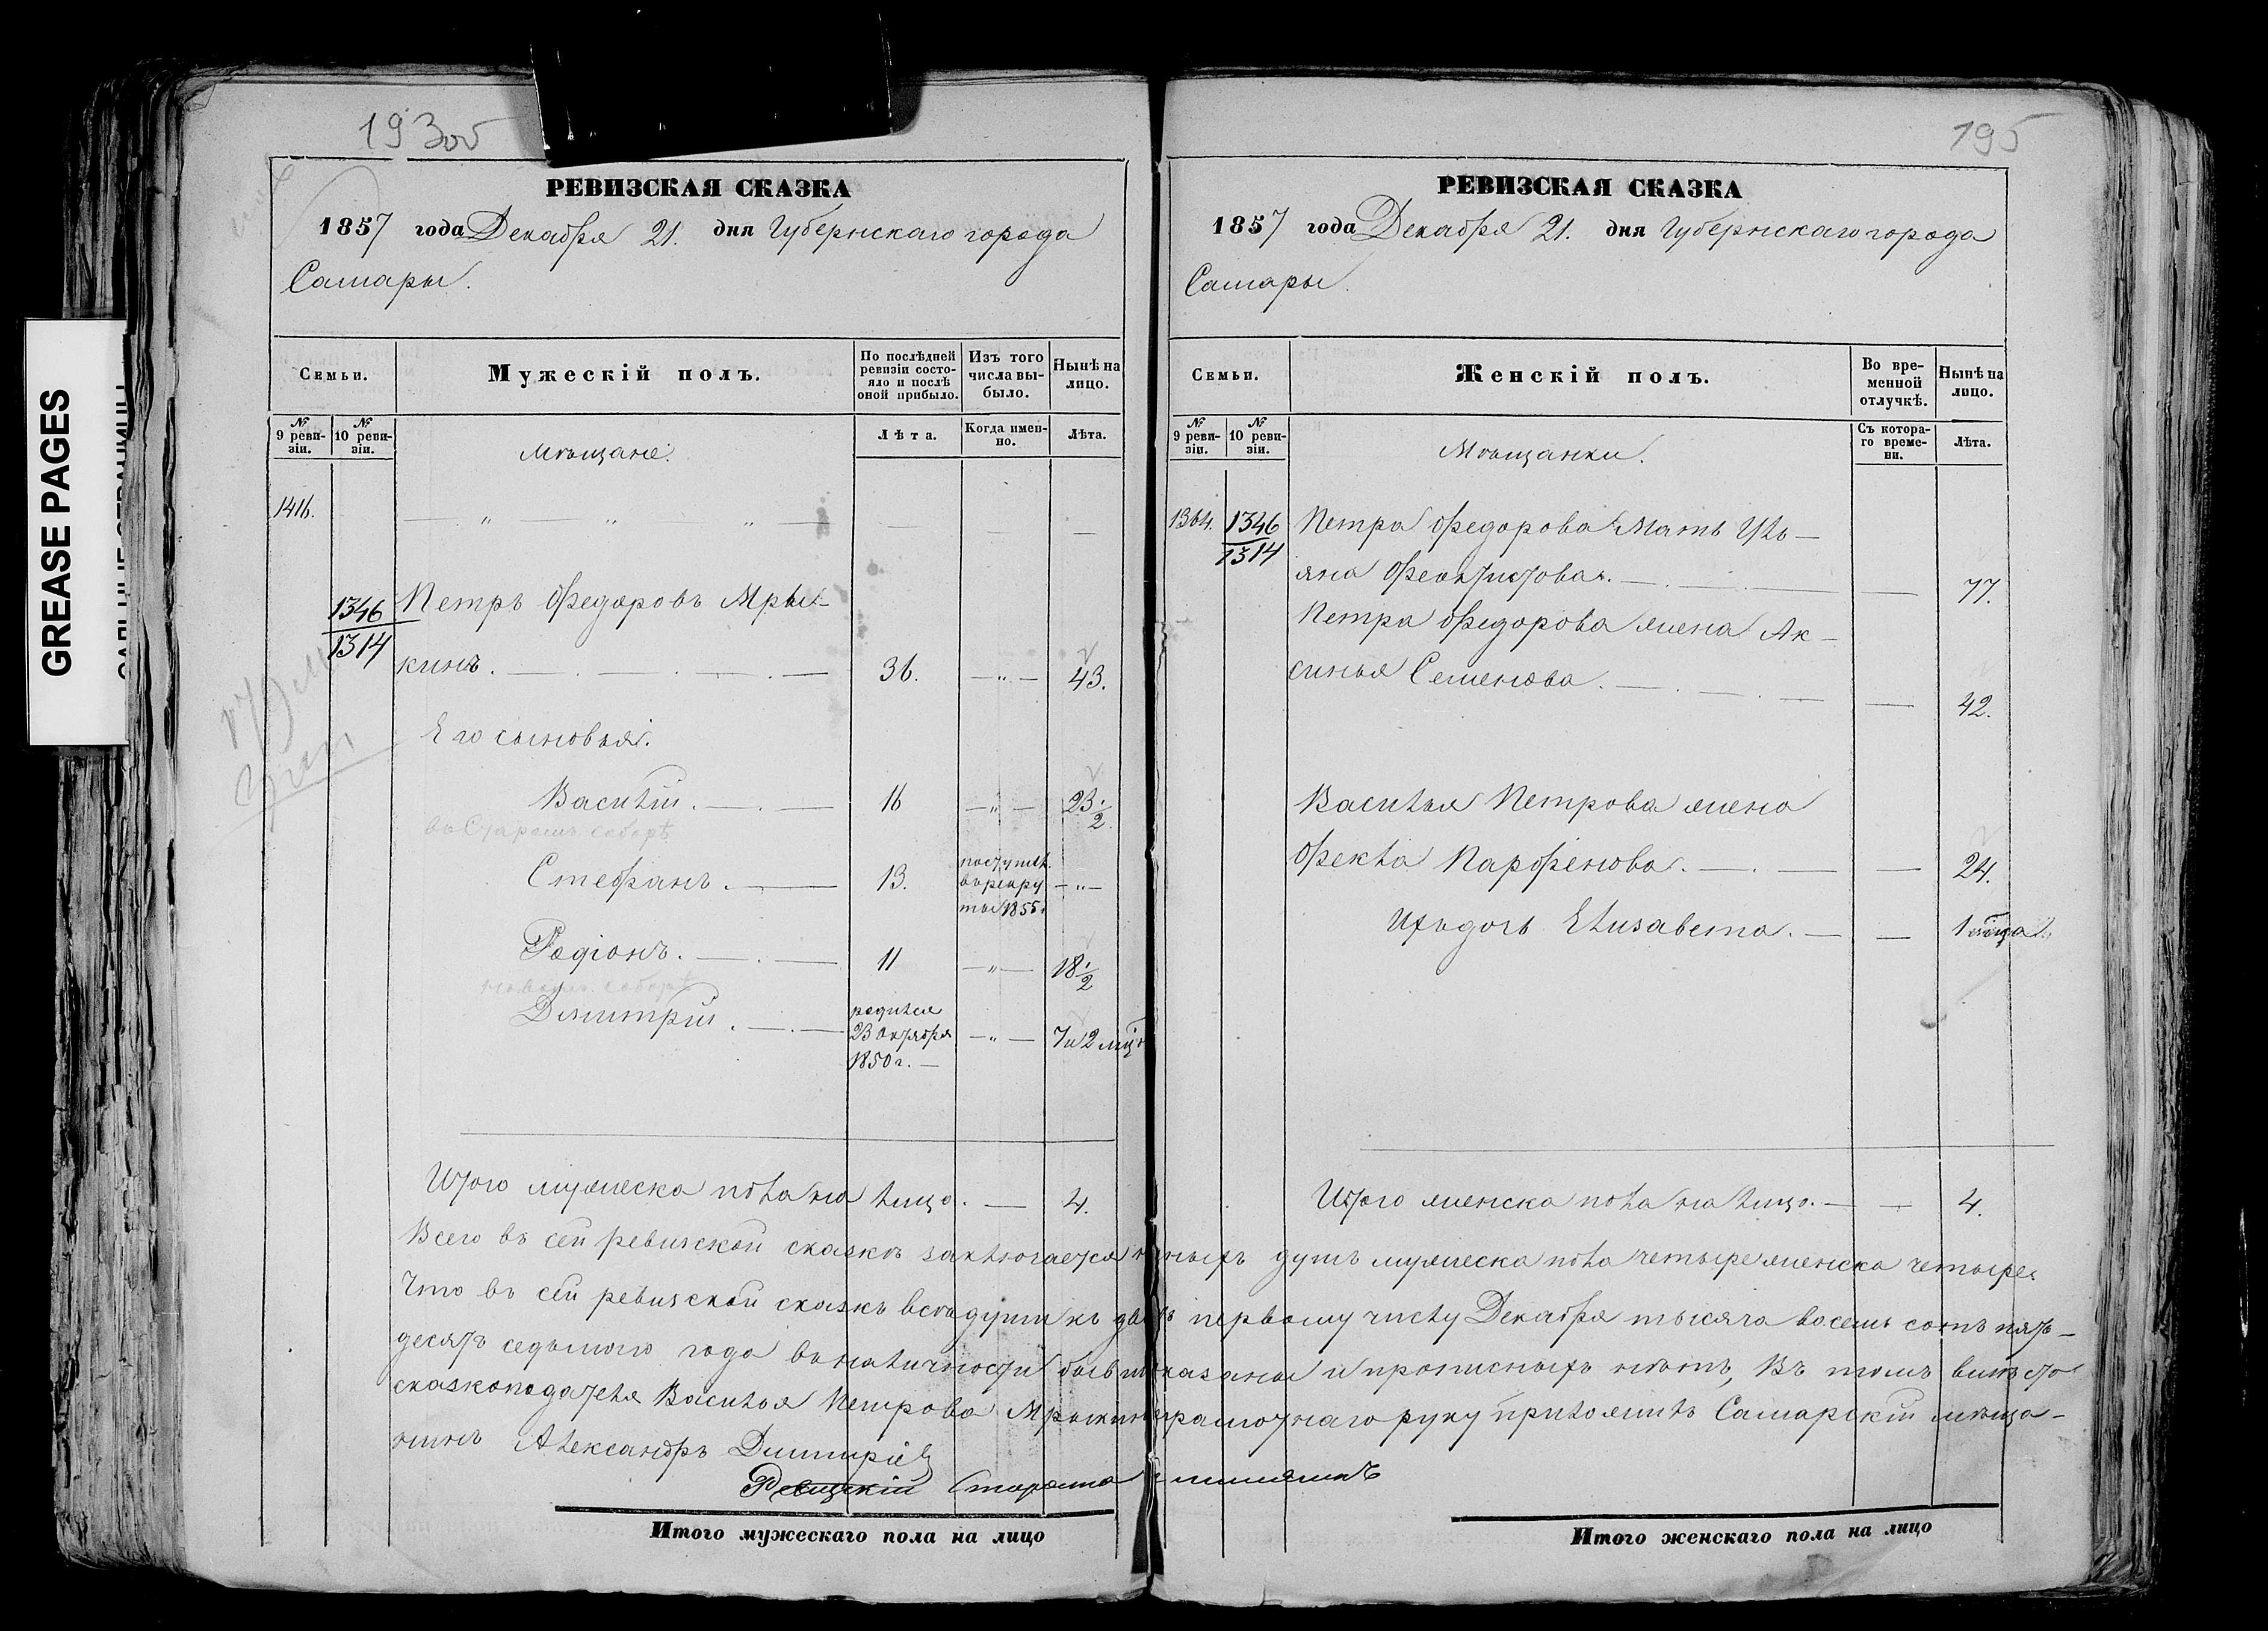 GREASE PAGES
193 об
РЕВИЗСКАЯ СКАЗКА
1857 года Декабря 21. дня Губернскаго города
Самары.
Семьи.
Мужескій полъ.
По послѣдней ревизіи состояло и послѣ оной прибыло.
Изъ того числа выбыло.
Нынѣ на лицо.
№ 9 ревизіи.
№ 10 ревизіи.
Мѣщане.
Лѣта.
Когда именно.
Лѣта.
1416.
1346
1314
Петръ Федоровъ Мры-
кинъ. 36. 43.
Его сыновья.
Василій. 16 23 1/2
въ Старомъ соборѣ
Стефанъ. 13. поступил. въ рекруты 1855.
Родіонъ. 11 18 1/2
Дмитрій. родился 23 октября 1850 г. 7 и 2 мѣц.
Итого мужеска пола на лицо. 4.
195
РЕВИЗСКАЯ СКАЗКА
1857 года Декабря 21. дня Губернскаго города
Самары.
Семьи.
Женскій полъ.
Во временной отлучкѣ.
Нынѣ на лицо.
№ 9 ревизіи.
№ 10 ревизіи.
Мѣщанки.
Съ котораго времени.
Лѣта.
1364. 1346
1314
Петра Федорова Мать Уль-
яна Феоктистова. 77.
Петра Федорова жена Ак-
синья Семенова. 42.
Василья Петрова жена
Фекла Парфенова. 24.
Ихъ дочь Елизавета. 1 мѣца.
Итого женска пола на лицо. 4.
Всего въ сей ревизской сказкѣ заключается душъ мужеска пола четыре женска четыре.
Что въ сей ревизской сказкѣ всѣ души къ двадцать первому числу Декабря тысяча восемь сотъ пять-
десятъ седьмого года въ наличности показаны и прописныхъ нѣтъ, Въ томъ вмѣсто
сказкоподателя Василья Петрова Мрыкина неграмотнаго руку приложилъ Самарскій мѣща-
нинъ Александръ Димитріев
Староста
Итого мужескаго пола на лицо
Итого женскаго пола на лицо